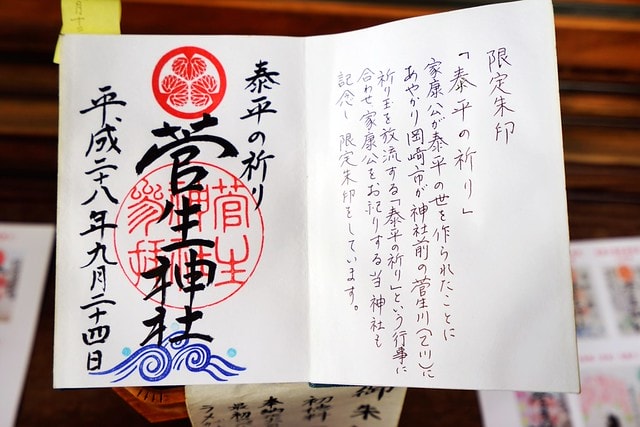 限定朱印
「泰平の祈り」
家康公が泰平の世を作られたことに
あやかり岡崎市が神社前の菅生川(乙川)に
祈り玉を放流する「泰平の祈り」という行事に
合わせ家康公をお祀りする当神社も
記念し限定朱印をしています。
泰平の祈り
菅生神社
平成二十八年九月二十四日
菅生
神社
御朱
初穂料